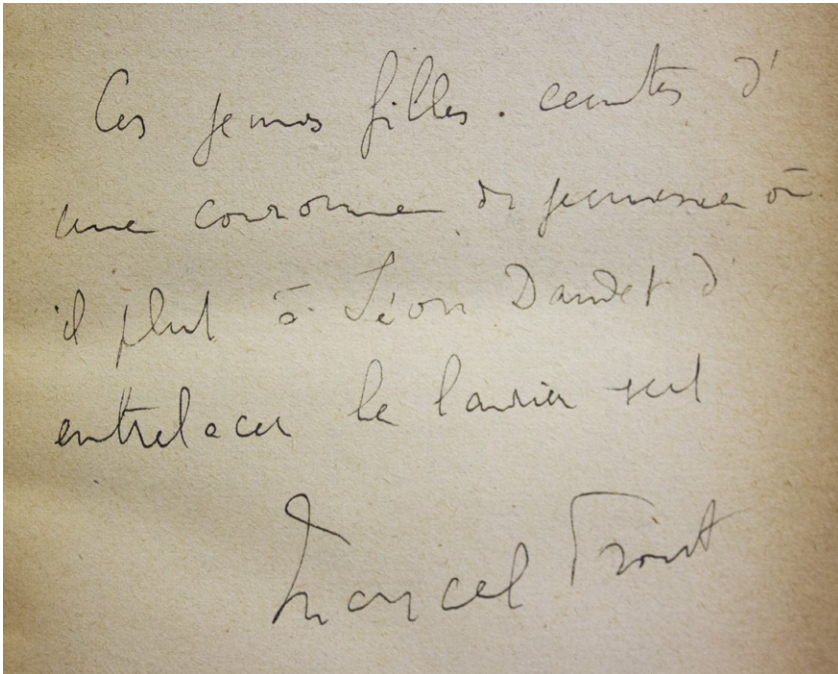 Ces jeunes filles. ceintes d'
une couronne de jeunesse où
il plut à Léon Daudet d'
entrelacer le laurier vert
Marcel Proust